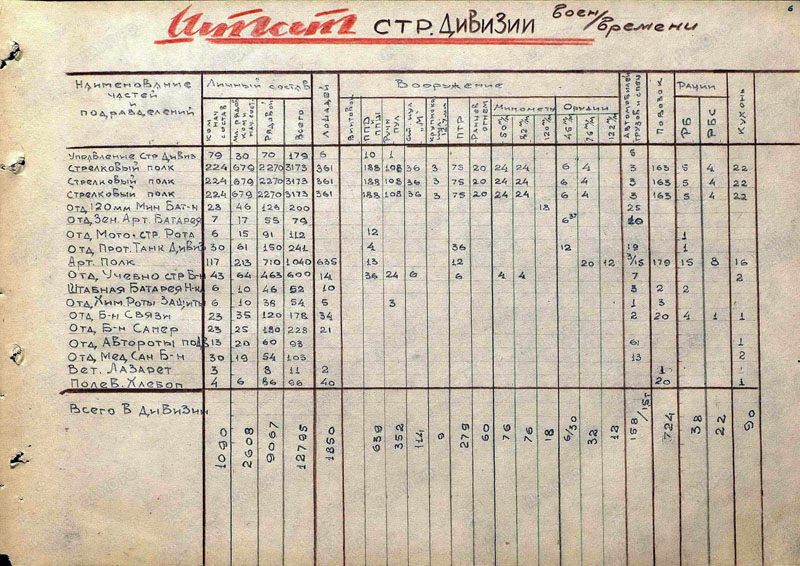 6
Штат стр. дивизии воен/времени
Наименование частей и подразделений
Личный состав
Лошадей
Вооружение
Автомобилей грузов и спец
повозок
Рации
Кухонь
Ком нач состав
Рядовой
Всего
Винтовок
ППД ППШ
Ручн пул
крупнокал 12,7мм
ПТР
Ранцев огнем
Минометы
50 м/м
82 м/м
120 м/м
Орудий
45 м/м
76 м/м
122 м/м
РБ
РБС
Управление Стр Дивиз 79 30 70 179 6 10 1 6
Стрелковый полк 224 679 2270 3173 361 188 108 36 3 75 20 24 24 6 4 3 163 5 4 22
Стрелковый полк 224 679 2270 3173 361 188 108 36 3 75 20 24 24 6 4 3 163 5 4 22
Стрелковый полк 224 679 2270 3173 361 188 108 36 3 75 20 24 24 6 4 3 163 5 4 22
Отд 120мм Мин Бат-н 28 46 126 200 18 25
Отд. Зен. Арт. Батарея 7 17 55 79 6 37
Отд. Мото-стр. Рота 6 15 91 112 12 1
Отд. Прот. Танк Дивиз 30 61 150 241 4 36 12 19 1
Арт. Полк 117 213 710 1040 635 13 12 20 12 3/15 179 15 8 16
Отд. Учебно стр Б-н 43 64 463 600 14 36 24 6 6 4 4 7 2
Штабная Батарея Н-ка 6 10 46 52 10 3 2 2
Отд. Хим. Роты Защиты 6 10 38 54 5 3 1 3
Отд. Б-н Связи 23 35 120 178 34 2 20 4 1 1
Отд. Б-н Сапер 23 25 180 228 21
Отд. Автороты подв 13 20 60 93 61 1
Отд. Мед. Сан Б-н 30 19 54 103 13 2
Вет. Лазарет 3 8 11 2 1
Полев. Хлебоп 4 6 86 96 40 20 1
Всего в дивизии 1090 2608 9067 12795 1850 639 352 114 9 279 60 76 76 18 6/30 32 12 158/15т 724 38 22 90